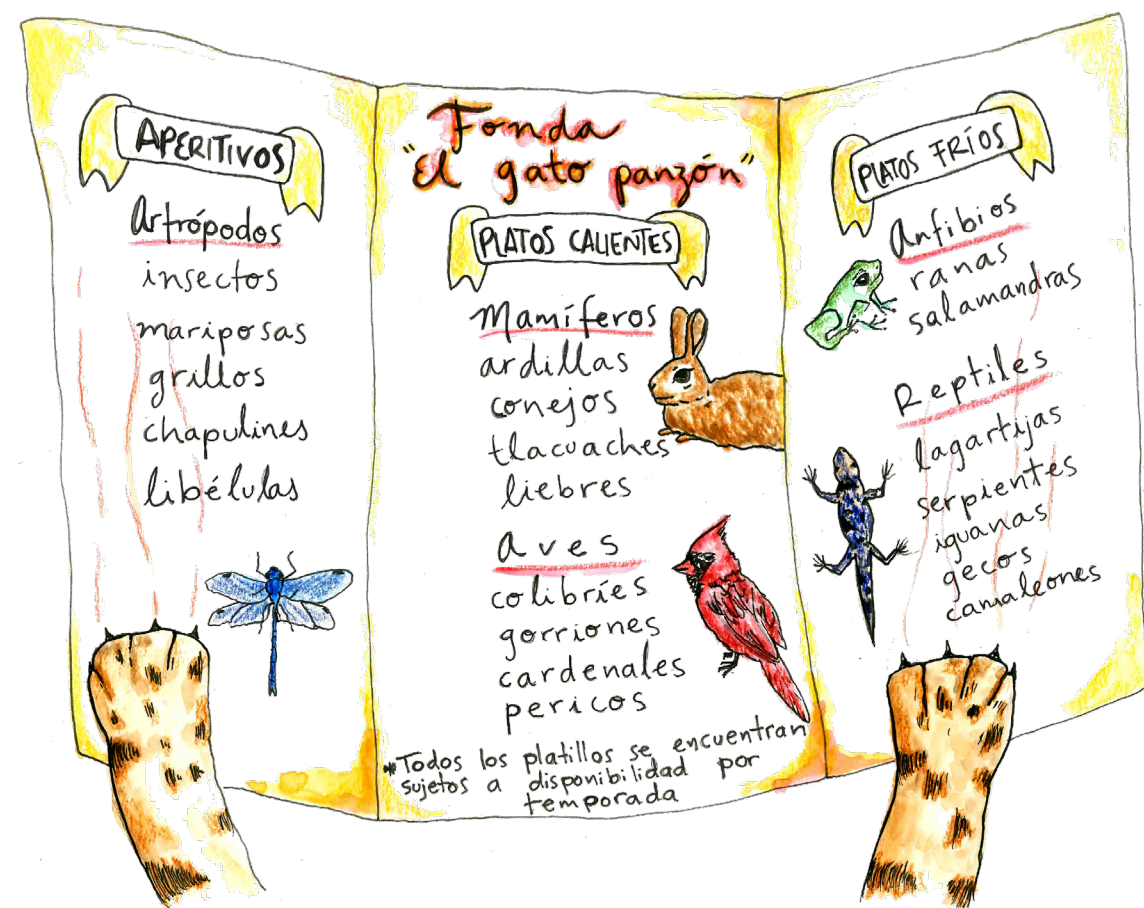 APERITIVOS
Artrópodos
insectos
mariposas
grillos
chapulines
libélulas
Fonda
"El gato panzón"
PLATOS CALIENTES
Mamíferos
ardillas
conejos
tlacuaches
liebres
Aves
colibríes
gorriones
cardenales
pericos
*Todos los platillos se encuentran
sujetos a disponibilidad por
temporada
PLATOS FRÍOS
Anfibios
ranas
salamandras
Reptiles
lagartijas
serpientes
iguanas
gecos
camaleones